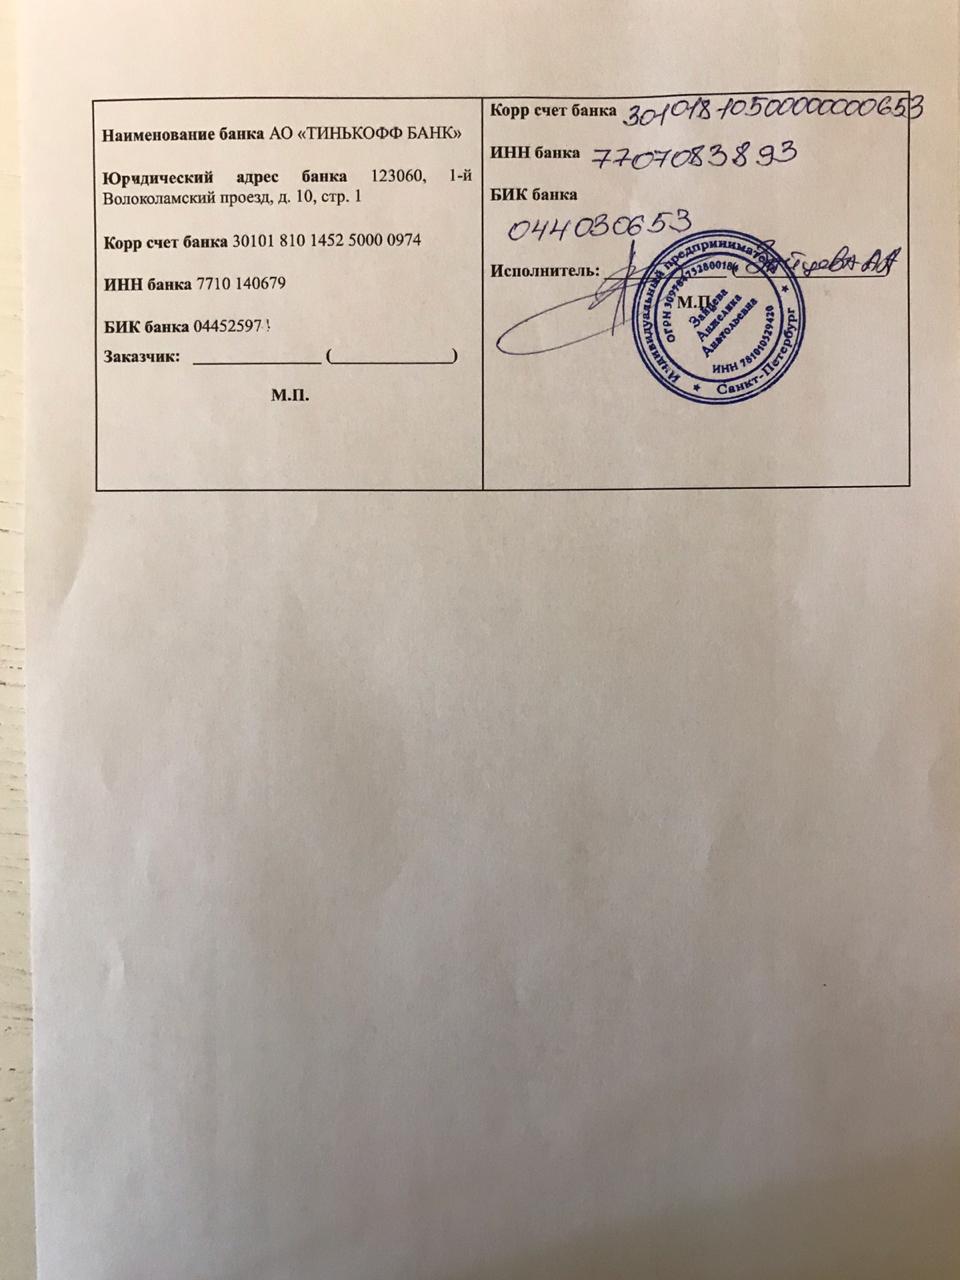 Наименование банка АО «ТИНЬКОФФ БАНК»
Юридический адрес банка 123060, 1-й
Волоколамский проезд, д. 10, стр. 1
Корр счет банка 30101 810 1452 5000 0974
ИНН банка 7710 140679
БИК банка 04452597
Заказчик: ______________ (______________)
М.П.
Корр счет банка 30101810500000000653
ИНН банка 7707083893
БИК банка
044030653
Исполнитель: (Зайцева АА
М.П.
Индивидуальный предприниматель
ОГРН
Зайцева
Анжелика
Анатольевна
ИНН 781010529420
Санкт-Петербург